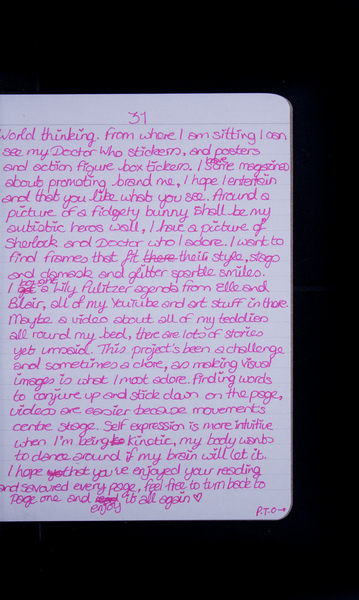 31
World thinking. From where I am sitting I can
see my Doctor Who stickers, and posters
and action figure box tickers. I have some magazines
about promoting brand me, I hope I entertain
and that you like what you see. Around a
picture of a fidgety bunny shall be my
autistic heros wall, I have a picture of
Sherlock and Doctor who I adore. I want to
find frames that fit there their style, stago
and damask and glitter sparkle smiles.
I got one a Lily Pulitzer agenda from Elle and
Blair, all of my YouTube and art stuff in there.
Maybe a video about all of my teddies
all round my bed, there are lots of stories
yet unsaid. This project's been a challenge
and sometimes a chore, as making visual
images is what I most adore. Finding words
to conjure up and stick down on the page,
videos are easier because movement's
centre stage. Self expression is more intuitive
when I'm being kinetic, my body wants
to dance around if my brain will let it.
I hope that you've enjoyed your reading
and savoured every page, feel free to turn back to
page one and enjoy it all again ♡
P.T.O→